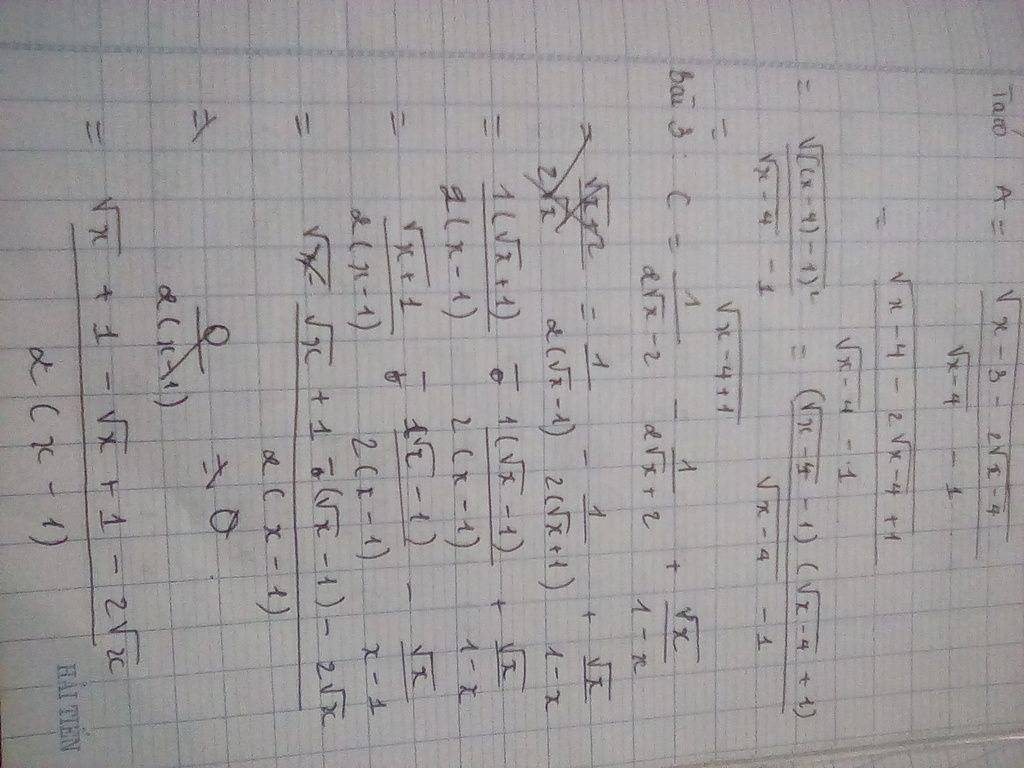 Taco A = √(x - 3 - 2√(x-4)) / (√(x-4) - 1)
= √(x - 4 - 2√(x-4) + 1) / (√(x-4) - 1)
= √((√(x-4) - 1)²) / (√(x-4) - 1) = (√(x-4) - 1) (√(x-4) + 1) / (√(x-4) - 1)
= √(x-4+1)
Bài 3: C = 1/(2√x - 2) - 1/(2√x + 2) + √x/(1 - x)
= 1/(2(√x - 1)) - 1/(2(√x + 1)) + √x/(1 - x)
= 1(√x + 1)/(2(x - 1)) - 1(√x - 1)/(2(x - 1)) + √x/(1 - x)
= (√x + 1)/(2(x - 1)) - (1√x - 1)/(2(x - 1)) - √x/(x - 1)
= (√x + 1 - (√x - 1) - 2√x)/(2(x - 1))
= 0/(2(x - 1)) = 0
= (√x + 1 - √x + 1 - 2√x)/(2(x - 1))
HẢI TIẾN